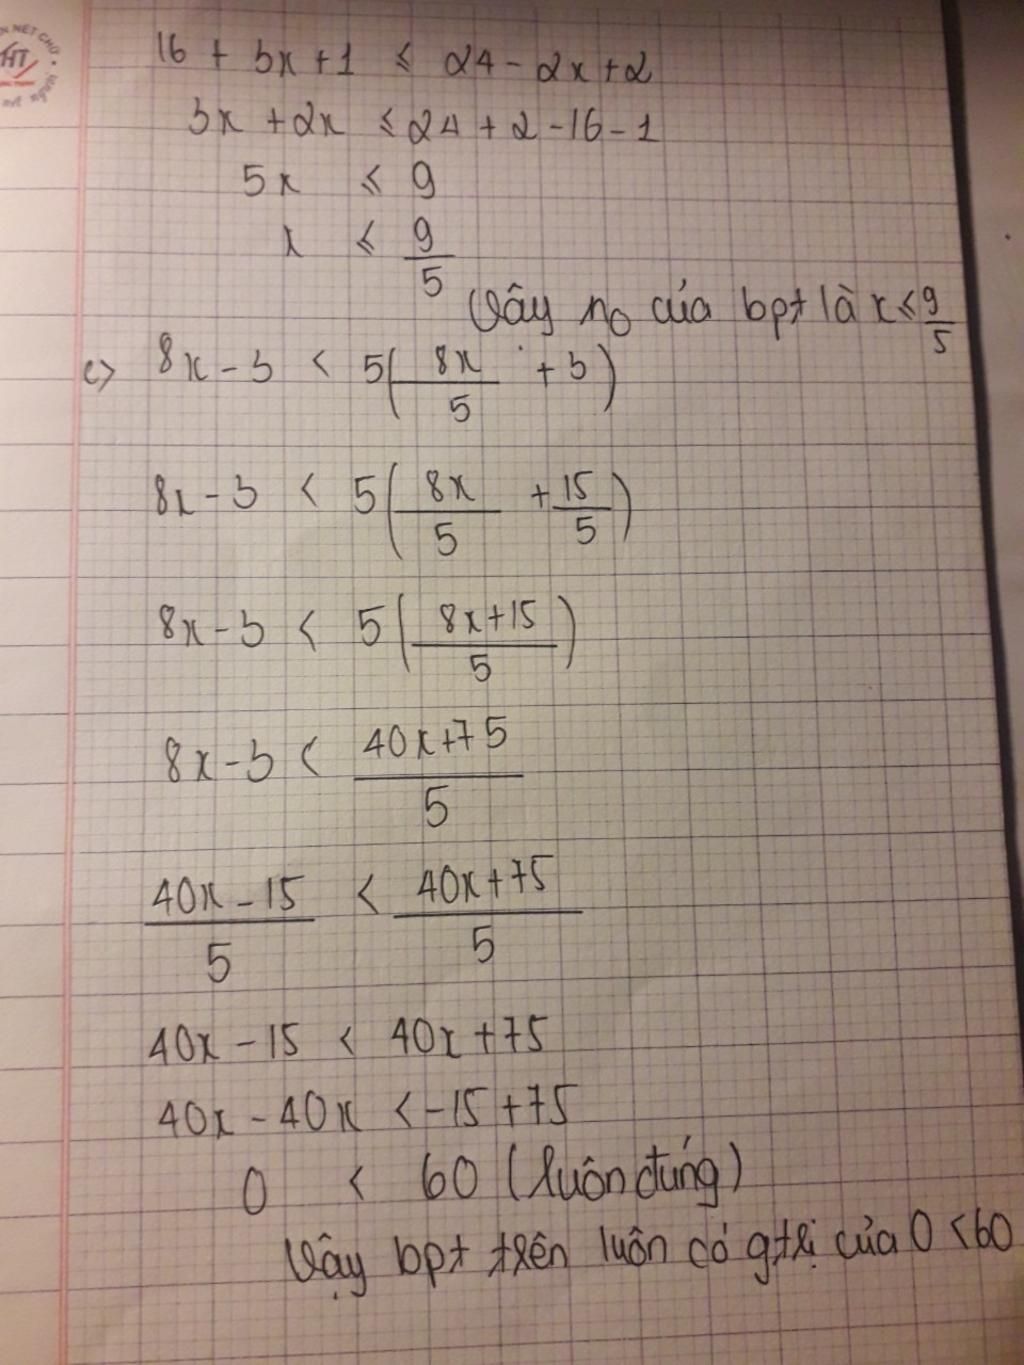 16 + 3x + 1 ≤ 24 - 2x + 2
3x + 2x ≤ 24 + 2 - 16 - 1
5x ≤ 9
x ≤ 9/5
Vậy no của bpt là x ≤ 9/5
c) 8x - 3 < 5(8x/5 + 3)
8x - 3 < 5(8x/5 + 15/5)
8x - 3 < 5((8x+15)/5)
8x - 3 < (40x+75)/5
(40x - 15)/5 < (40x + 75)/5
40x - 15 < 40x + 75
40x - 40x < -15 + 75
0 < 60 (luôn đúng)
Vậy bpt trên luôn có gtrị của 0 < 60